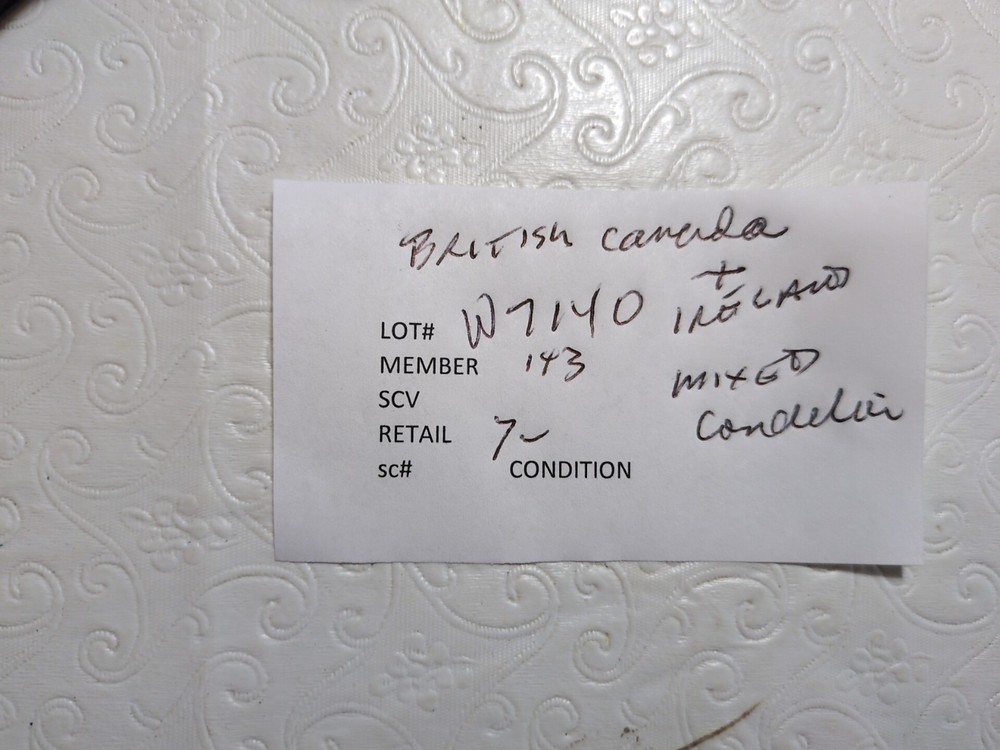 BRITISH Canada
+
IRELAND
LOT# W7140
MEMBER 143
MIXED
SCV
Condition
RETAIL 7-
sc# CONDITION